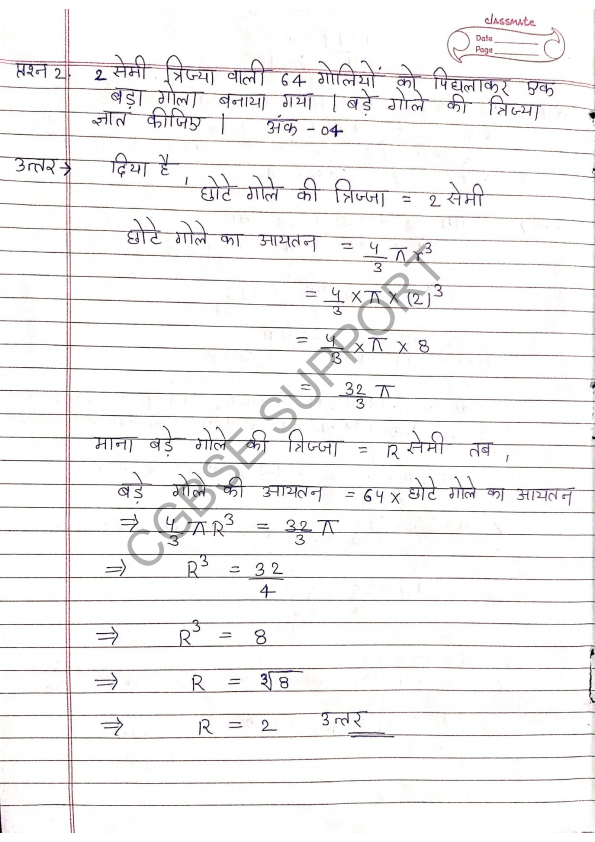 classmate
Date
Page
प्रश्न 2. 2 सेमी त्रिज्या वाली 64 गोलियों को पिघलाकर एक
बड़ा गोला बनाया गया | बड़े गोले की त्रिज्या
ज्ञात कीजिए | अंक - 04
उत्तर → दिया है,
छोटे गोले की त्रिज्जा = 2 सेमी
छोटे गोले का आयतन = 4/3 πr³
= 4/3 × π × (2)³
= 4/3 × π × 8
= 32/3 π
माना बड़े गोले की त्रिज्जा = R सेमी तब,
बड़े गोले की आयतन = 64 × छोटे गोले का आयतन
⇒ 4/3 πR³ = 32/3 π
⇒ R³ = 32/4
⇒ R³ = 8
⇒ R = ∛8
⇒ R = 2 उत्तर
CGBSE SUPPORT